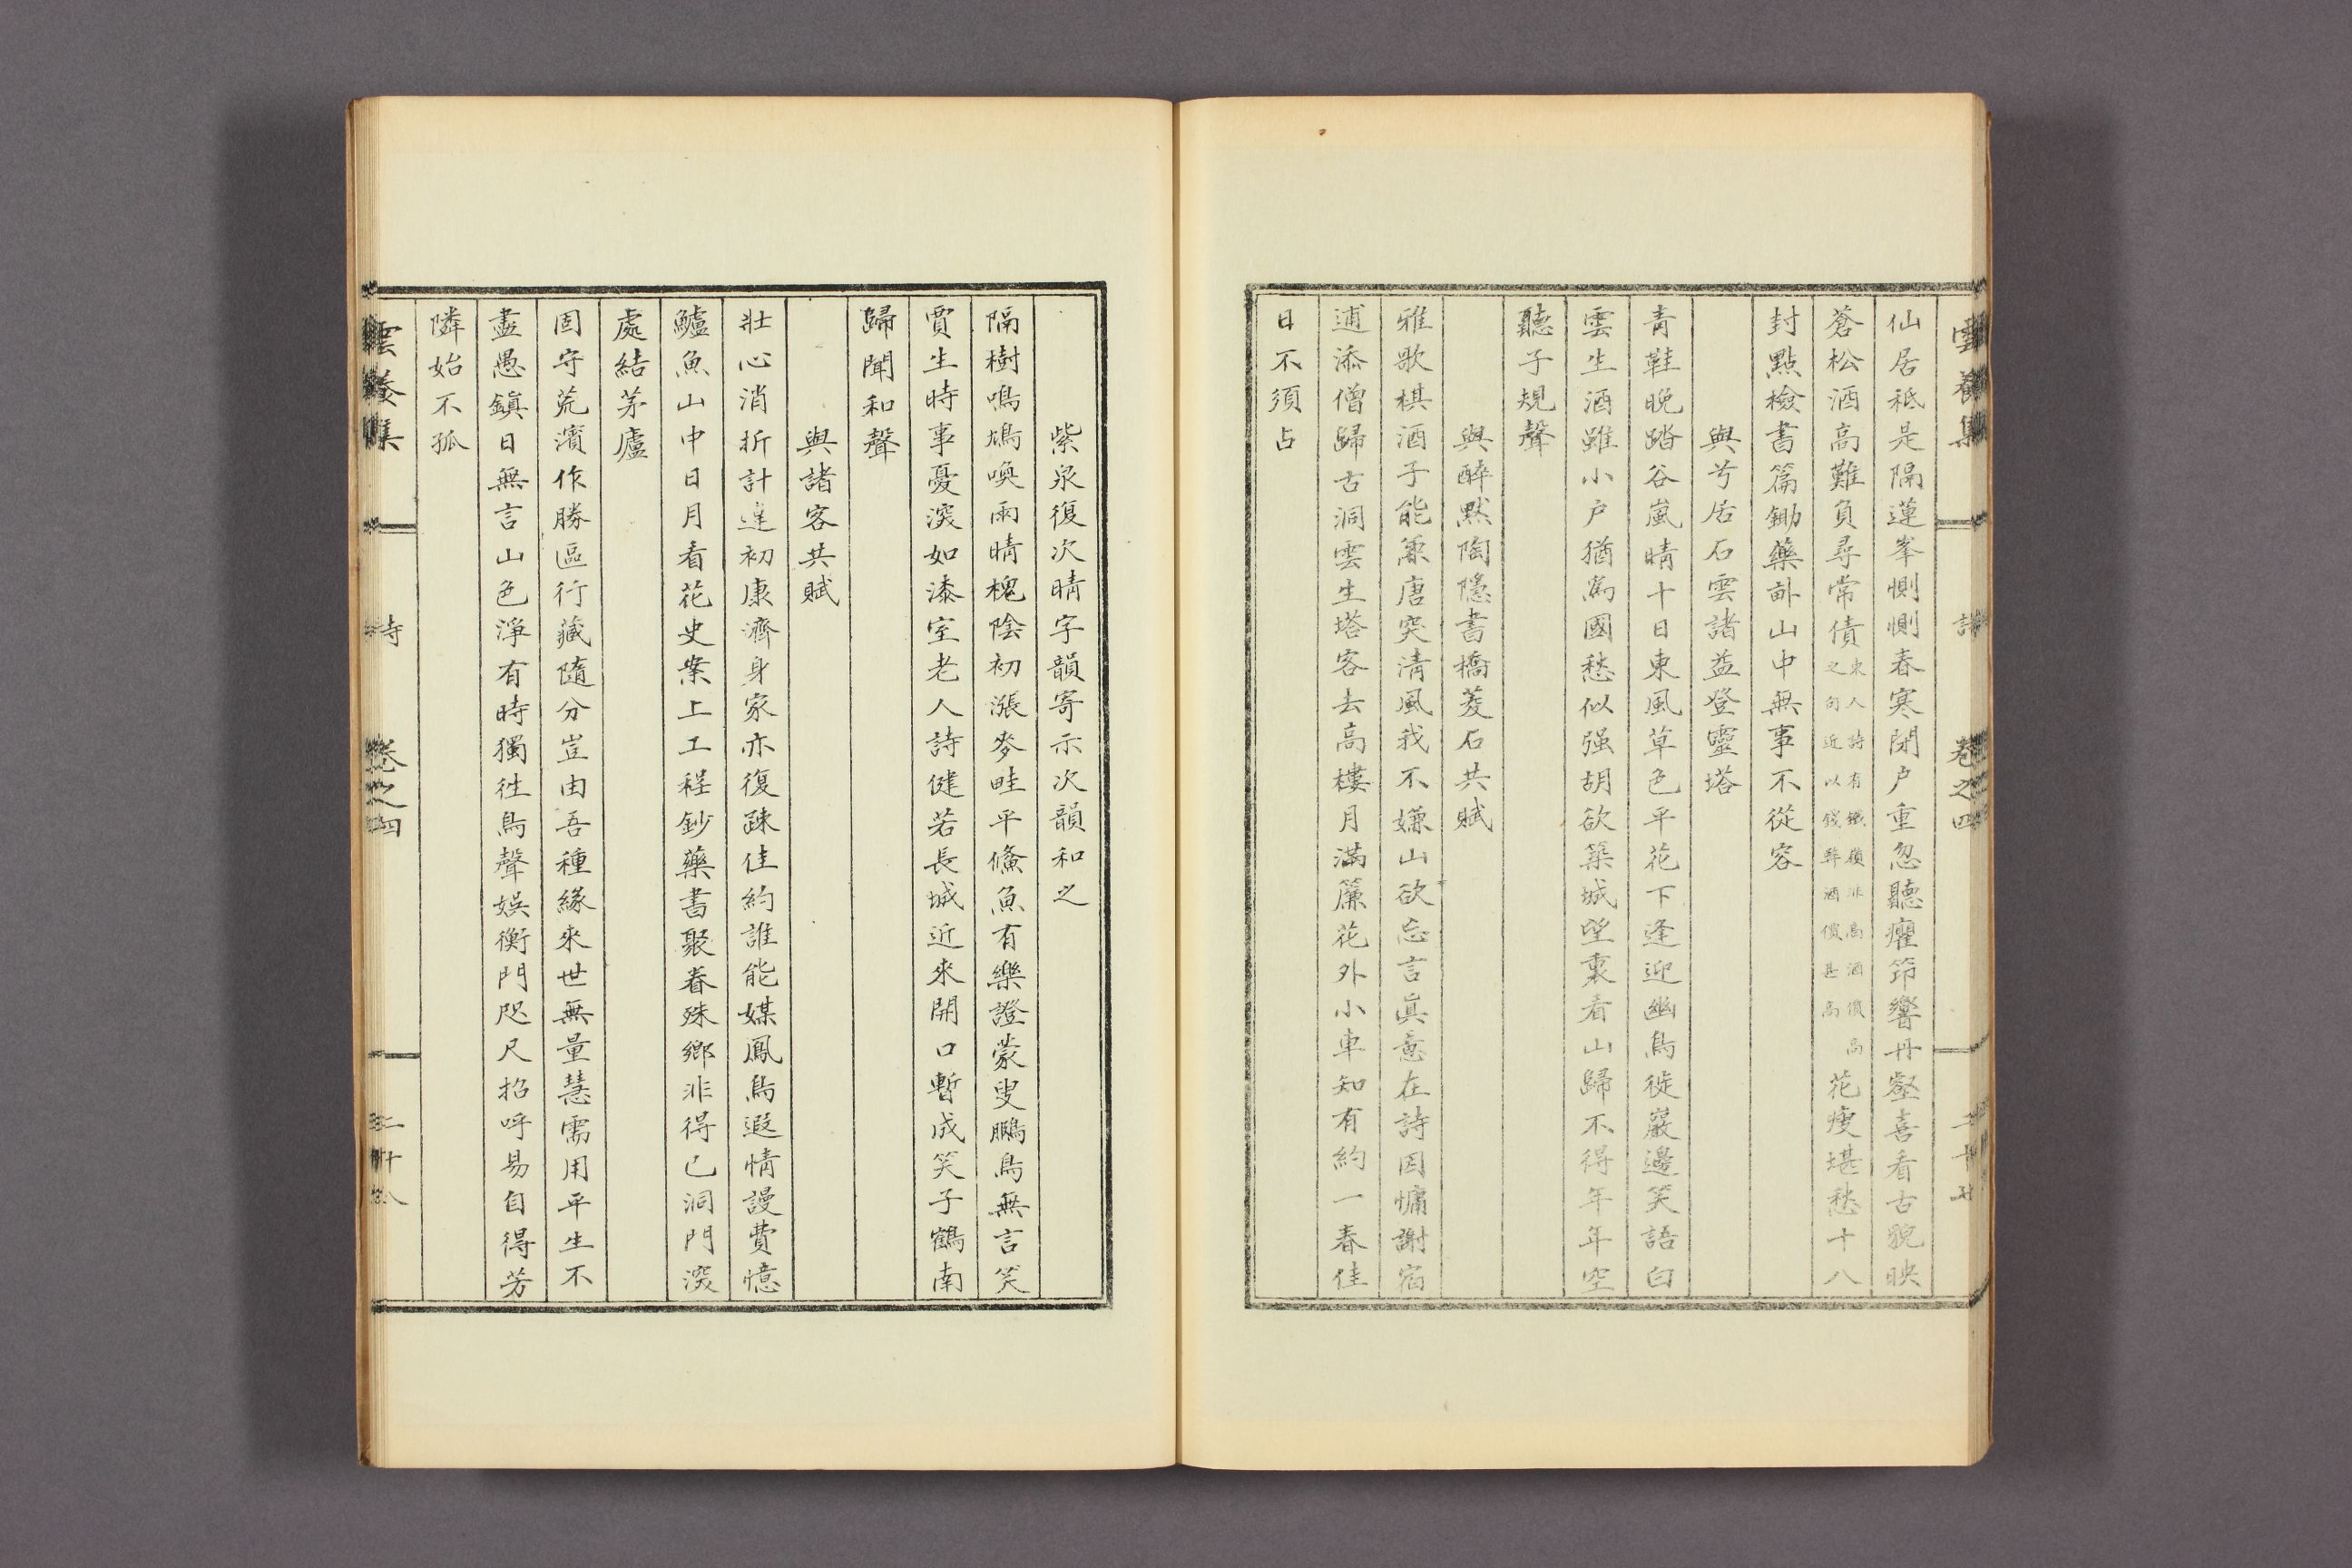 雲養集 詩 卷之四 二十七
仙居秪是隔蓮峯惻惻春寒閉户重忽聽癯筇響丹壑喜看古貌映
蒼松酒高難負尋常債東人詩有鐵嶺非高酒價高之句近以錢弊酒價甚高花瘦堪愁十八
封點檢書篇鋤藥畝山中無事不從容
與兮居石雲諸益登靈塔
青鞋晩踏谷嵐晴十日東風草色平花下逢迎幽鳥徙巖邊笑語白
雲生酒雖小户猶爲國愁似强胡欲築城望裏看山歸不得年年空
聽子規聲
與醉默陶隱書橋菱石共賦
雅歌棋酒子能兼唐突淸風我不嫌山欲忘言眞意在詩因慵謝宿
逋添僧歸古洞雲生塔客去高樓月滿簾花外小車知有約一春佳
日不須占
紫泉復次晴字韻寄示次韻和之
隔樹鳴鳩喚雨晴槐陰初漲麥畦平鯈魚有樂證蒙叟鵩鳥無言笑
賈生時事憂深如漆室老人詩健若長城近來開口暫成笑子鶴南
歸聞和聲
與諸客共賦
壯心消折計違初康濟身家亦復疎佳約誰能媒鳳鳥遐情謾費憶
鱸魚山中日月看花史案上工程鈔藥書聚眷殊鄉非得已洞門深
處結茅廬
固守荒濱作勝區行藏隨分豈由吾種緣來世無量慧需用平生不
盡愚鎭日無言山色淨有時獨徃鳥聲娛衡門咫尺招呼易自得芳
隣始不孤
雲養集 詩 卷之四 二十八